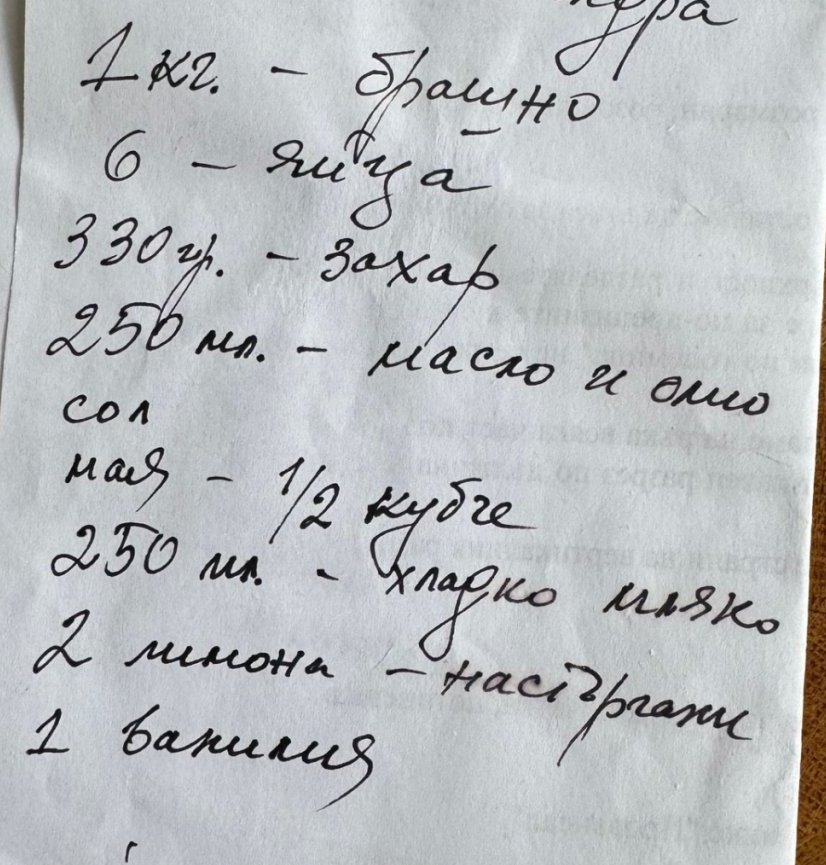 1 кг. - брашно
6 - яйца
330 гр. - захар
250 мл. - масло и олио
сол
мая - 1/2 кубче
250 мл. - хладко мляко
2 лимона - настъргани
1 ванилия